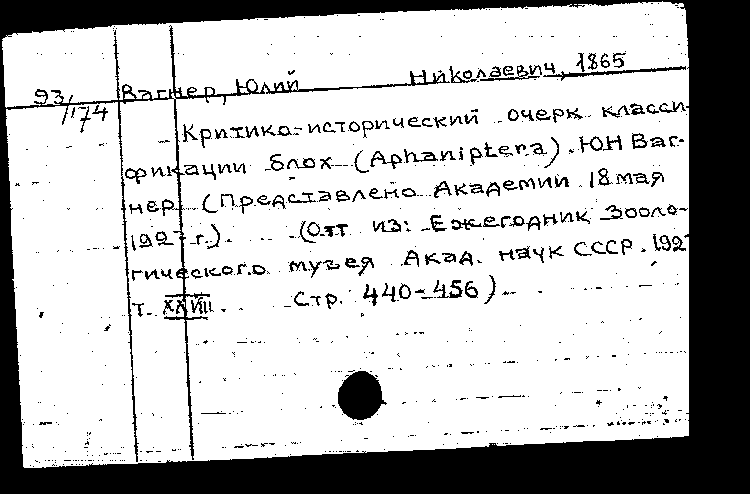 93/174 Вагнер, Юлий Николаевич, 1865
Критико-исторический очерк класси-
фикации блох (Aphaniptera). Ю.Н Ваг-
нер (Представлено Академии 18 мая
1927 г.). (Отт из: Ежегодник Зооло-
гического музея Акад. наук СССР. 192
т. XXVIII. Стр. 440-456).